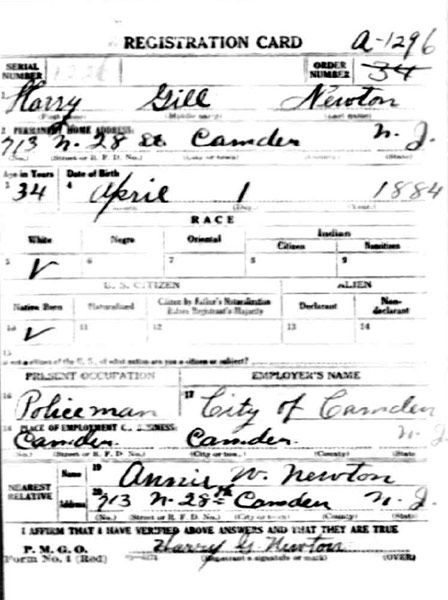 REGISTRATION CARD A-1296
SERIAL NUMBER 1226 ORDER NUMBER 34
1 Harry Gill Newton
(First name) (Middle name) (Last name)
2 PERMANENT HOME ADDRESS:
713 N. 28 St. Camden N. J.
(No.) (Street or R. F. D. No.) (City or town) (County) (State)
Age in Years Date of Birth
3 34 4 April 1 1884
(Month) (Day) (Year)
RACE
White Negro Oriental Indian
Citizen Noncitizen
5 ✓ 6 7 8 9
U. S. CITIZEN ALIEN
Native Born Naturalized Citizen by Father's Naturalization Before Registrant's Majority Declarant Non-declarant
10 ✓ 11 12 13 14
15
If not a citizen of the U. S., of what nation are you a citizen or subject?
PRESENT OCCUPATION EMPLOYER'S NAME
16 Policeman 17 City of Camden
18 PLACE OF EMPLOYMENT OR BUSINESS:
Camden Camden N. J.
(No.) (Street or R. F. D. No.) (City or town) (County) (State)
NEAREST RELATIVE Name 19 Annie W. Newton
Address 20 713 N. 28th Camden N. J.
(No.) (Street or R. F. D. No.) (City or town) (County) (State)
I AFFIRM THAT I HAVE VERIFIED ABOVE ANSWERS AND THAT THEY ARE TRUE
P. M. G. O.
Form No. 1 (Red) Harry G Newton
(Registrant's signature or mark) (OVER)